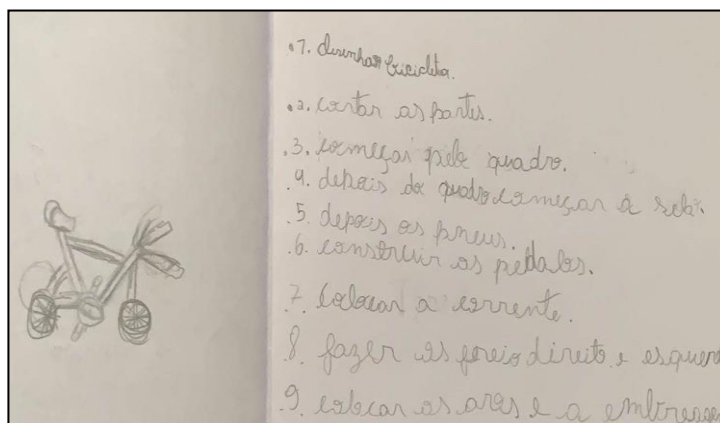 .1. desenhar bicicleta.
.2. cortar as partes.
.3. começar pelo quadro.
.4. depois do quadro começar a sela.
.5. depois os pneus.
.6. construir os pedalos.
.7. colocar a corrente.
.8. fazer os freio direito e esquerd
.9. colocar os aros e a embreagem